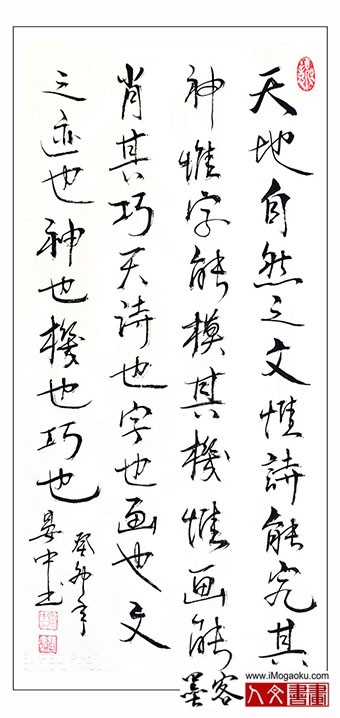 天地自然之文惟詩能究其
神惟字能模其機惟画能
肖其巧夫詩也字也画也文
之迹也神也機也巧也
癸卯年
晏中书
墨客
www.iMogaoku.com
人文書畫